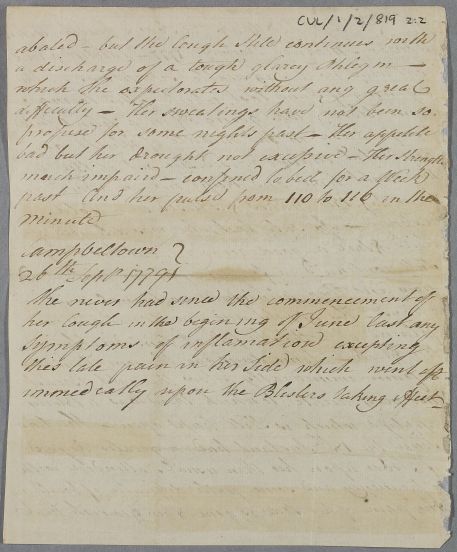 CUL/1/2/819 2:2
abated – but the Cough Still continues with
a discharge of a tough glarey Phlegm –
which She expectorates without any great
difficulty – Her sweatings have not been so
profuse for some nights past – Her appetite
bad but her drought not excessive – Her Strength
much impaird – confined to bed for a Week
past and her pulse from 110 to 116 in the
minute
Campbeltown
26th Septr 1779
She never had since the commencement of
her Cough in the begining of June last any
Symptoms of inflamation excepting
this late pain in her Side which went off
immediately upon the Blisters taking effect